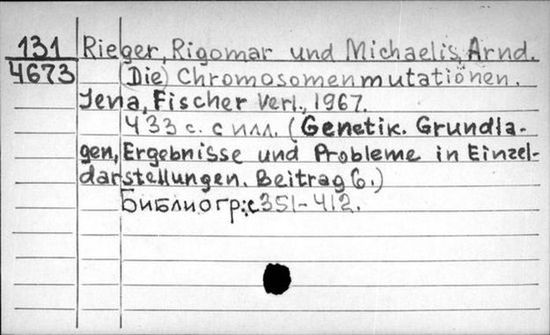 131
4673
Rieger, Rigomar und Michaelis, Arnd.
(Die) Chromosomenmutationen.
Jena, Fischer Verl., 1967.
433 с. с илл. (Genetik. Grundla-
gen, Ergebnisse und Probleme in Einzel-
darstellungen. Beitrag 6.)
Библиогр: с 351-412.